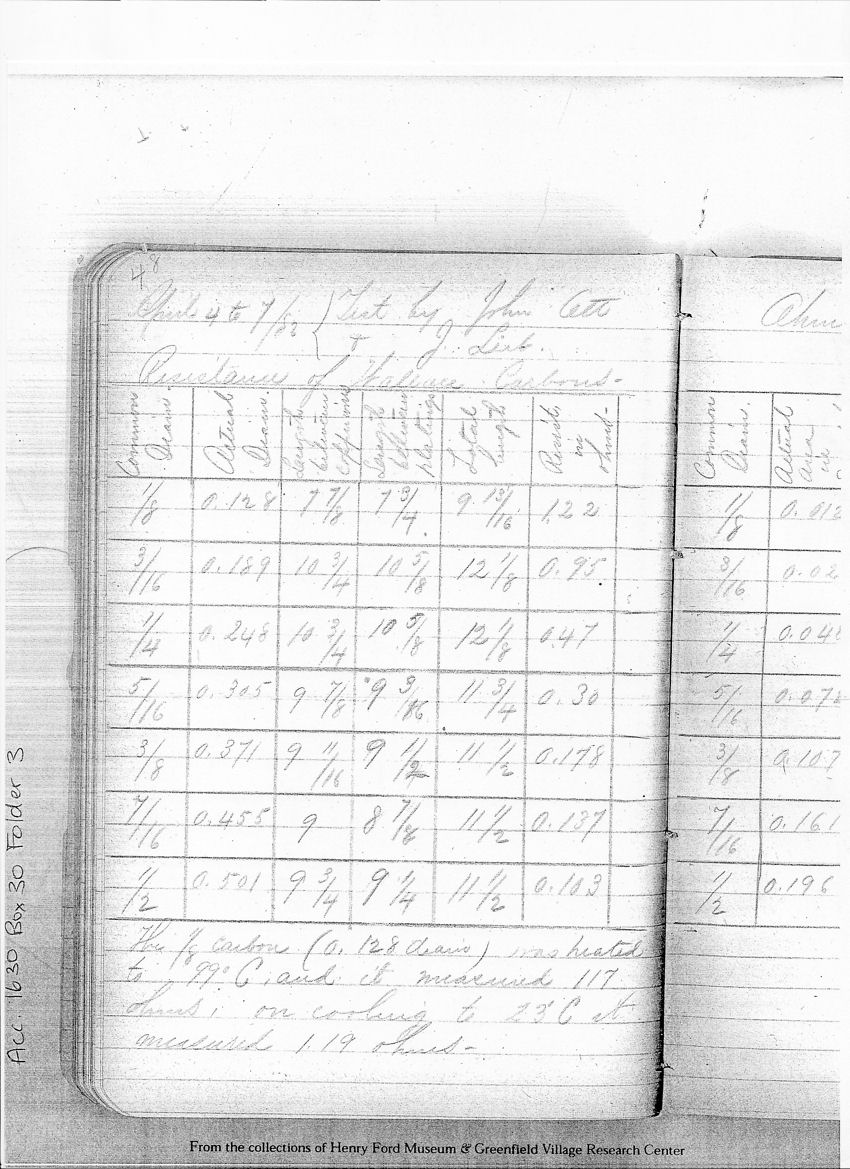 48
April 4 to 7/82 { Test by John Ott
& J. Lieb.
Resistance of Wallace Carbons-
Common Diam. | Actual Diam. | Length between coppering | Length between platings | Total length | Resist. in ohms-
1/8 | 0.128 | 7 7/8 | 7 3/4 | 9 13/16 | 1.22
3/16 | 0.189 | 10 3/4 | 10 5/8 | 12 1/8 | 0.95
1/4 | 0.248 | 10 3/4 | 10 5/8 | 12 1/8 | 0.47
5/16 | 0.305 | 9 7/8 | 9 3/16 | 11 3/4 | 0.30
3/8 | 0.371 | 9 11/16 | 9 1/2 | 11 1/2 | 0.178
7/16 | 0.455 | 9 | 8 7/8 | 11 1/2 | 0.137
1/2 | 0.501 | 9 3/4 | 9 1/4 | 11 1/2 | 0.103
The 1/8 carbon (0.128 diam) was heated
to 99° C, and it measured 117
ohms; on cooling to 23° C it
measured 1.19 ohms-
Ohm
Common Diam. | Actual area in
1/8 | 0.012
3/16 | 0.02
1/4 | 0.04
5/16 | 0.07
3/8 | 0.107
7/16 | 0.161
1/2 | 0.196
Acc. 1630 Box 30 Folder 3
From the collections of Henry Ford Museum & Greenfield Village Research Center